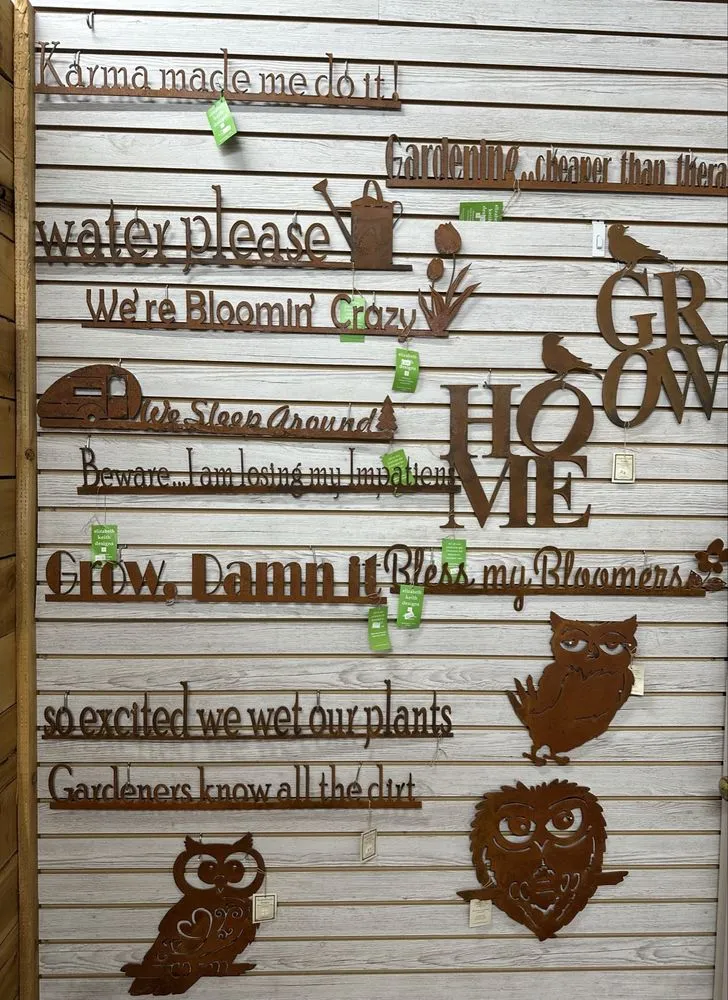 Karma made me do it!
Gardening...cheaper than thera
water please
GR
OW
We're Bloomin' Crazy
HO
ME
We Sleep Around
Beware...I am losing my Impatien
Grow, Damn it
Bless my Bloomers
elizabeth
keith
designs
elizabeth
keith
designs
so excited we wet our plants
Gardeners know all the dirt